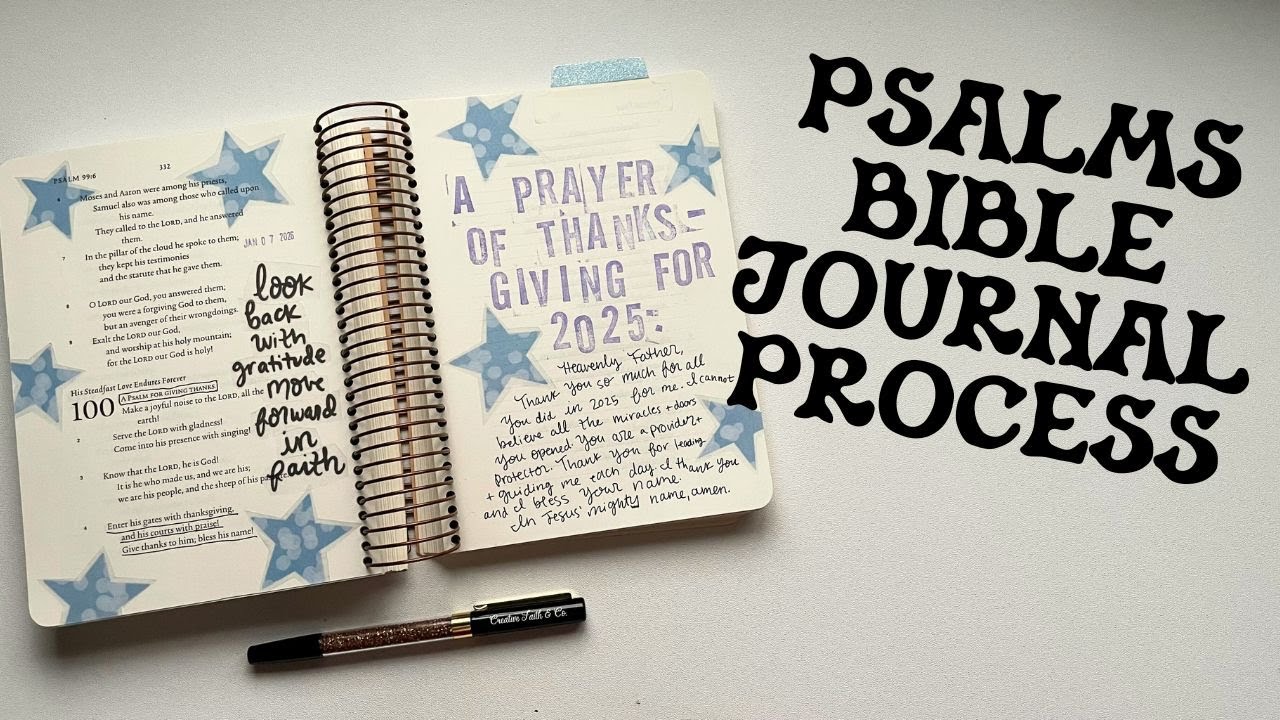 PSALM 99:6
332
6 Moses and Aaron were among his priests,
Samuel also was among those who called upon
his name.
They called to the LORD, and he answered
them.
7 In the pillar of the cloud he spoke to them;
they kept his testimonies
and the statute that he gave them.
JAN 07 2026
8 O LORD our God, you answered them;
you were a forgiving God to them,
but an avenger of their wrongdoings.
9 Exalt the LORD our God,
and worship at his holy mountain;
for the LORD our God is holy!
look
back
with
gratitude
move
forward
in
faith
His Steadfast Love Endures Forever
100 A PSALM FOR GIVING THANKS
Make a joyful noise to the LORD, all the
earth!
2 Serve the LORD with gladness!
Come into his presence with singing!
3 Know that the LORD, he is God!
It is he who made us, and we are his;
we are his people, and the sheep of his
4 Enter his gates with thanksgiving,
and his courts with praise!
Give thanks to him; bless his name!
A PRAYER
OF THANKS-
GIVING FOR
2025:
Heavenly Father,
Thank you so much for all
you did in 2025 for me. I cannot
believe all the miracles + doors
you opened. You are a provider +
protector. Thank you for leading
+ guiding me each day. I thank you
and I bless your name.
In Jesus' mighty name, amen.
Creative Faith & Co.
PSALMS
BIBLE
JOURNAL
PROCESS